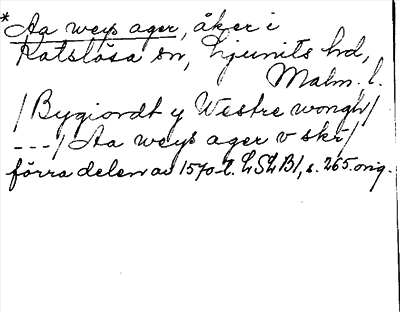 * Aa weys ager, åker i
Katslösa sn, Ljunits hd,
Malm. l.
/Bygiordt y Westre wongh/
---/ Aa weys ager v skr/
förra delen av 1570-t. LSLB1, s. 265. orig.